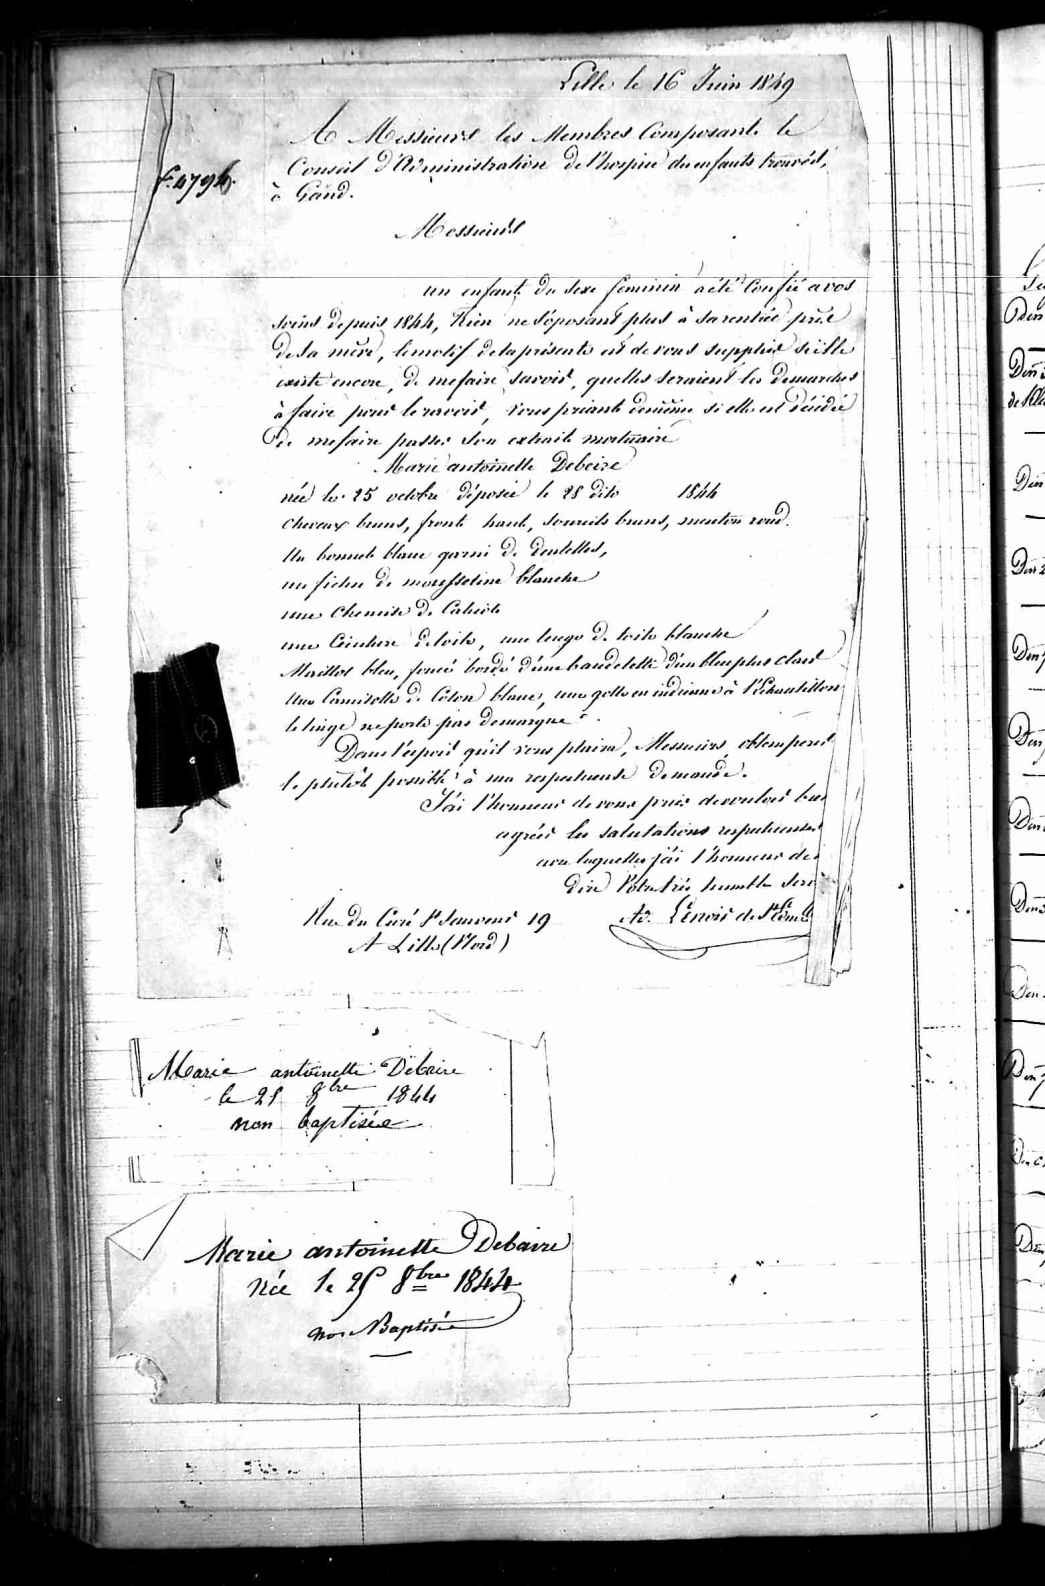 Lille le 16 Juin 1849
A Messieurs les Membres Composants le
Conseil d'Administration de l'hospice des enfants trouvés,
à Gand.
Messieurs
un enfant du sexe féminin a été Confié a vos
soins depuis 1844, Rien ne s'oposant plus à sa rentrée près
de sa mère, le motif de la présente est de vous supplier si elle
existe encore, de me faire savoir, quelles seraient les demarches
à faire pour le ravoir, vous priant de même si elle est décédée
de me faire passer son extrait mortuaire
Marie antoinette Debeire
née le 25 octobre déposée le 28 dito 1844
cheveux bruns, front haut, sourcils bruns, menton rond.
Un bonnet blanc garni de dentelles,
un fichu de mousseline blanche
une chemise de Calicot
une Ceinture de toile, une lange de toile blanche
Maillot bleu, foncé bordé d'une bandelette d'un bleu plus clair
Une Camisolle de Coton blanc, une en indienne à l'échantillon
le linge ne porte pas de marque
Dans l'espoir qu'il vous plaira, Messieurs, obtemperer
le plutôt possible à ma respectueuse demande.
J'ai l'honneur de vous prier de vouloir
agréer les salutations respectueuses
avec lesquelles j'ai l'honneur de
dire Votre très humble
Rue du Curé St Sauveur 19
A Lille (Nord)
Ad. Lenoir de
Marie antoinette Debeire
le 25 8bre 1844
non baptisée
Marie antoinette Debaire
née le 25 8bre 1844
non Baptisée